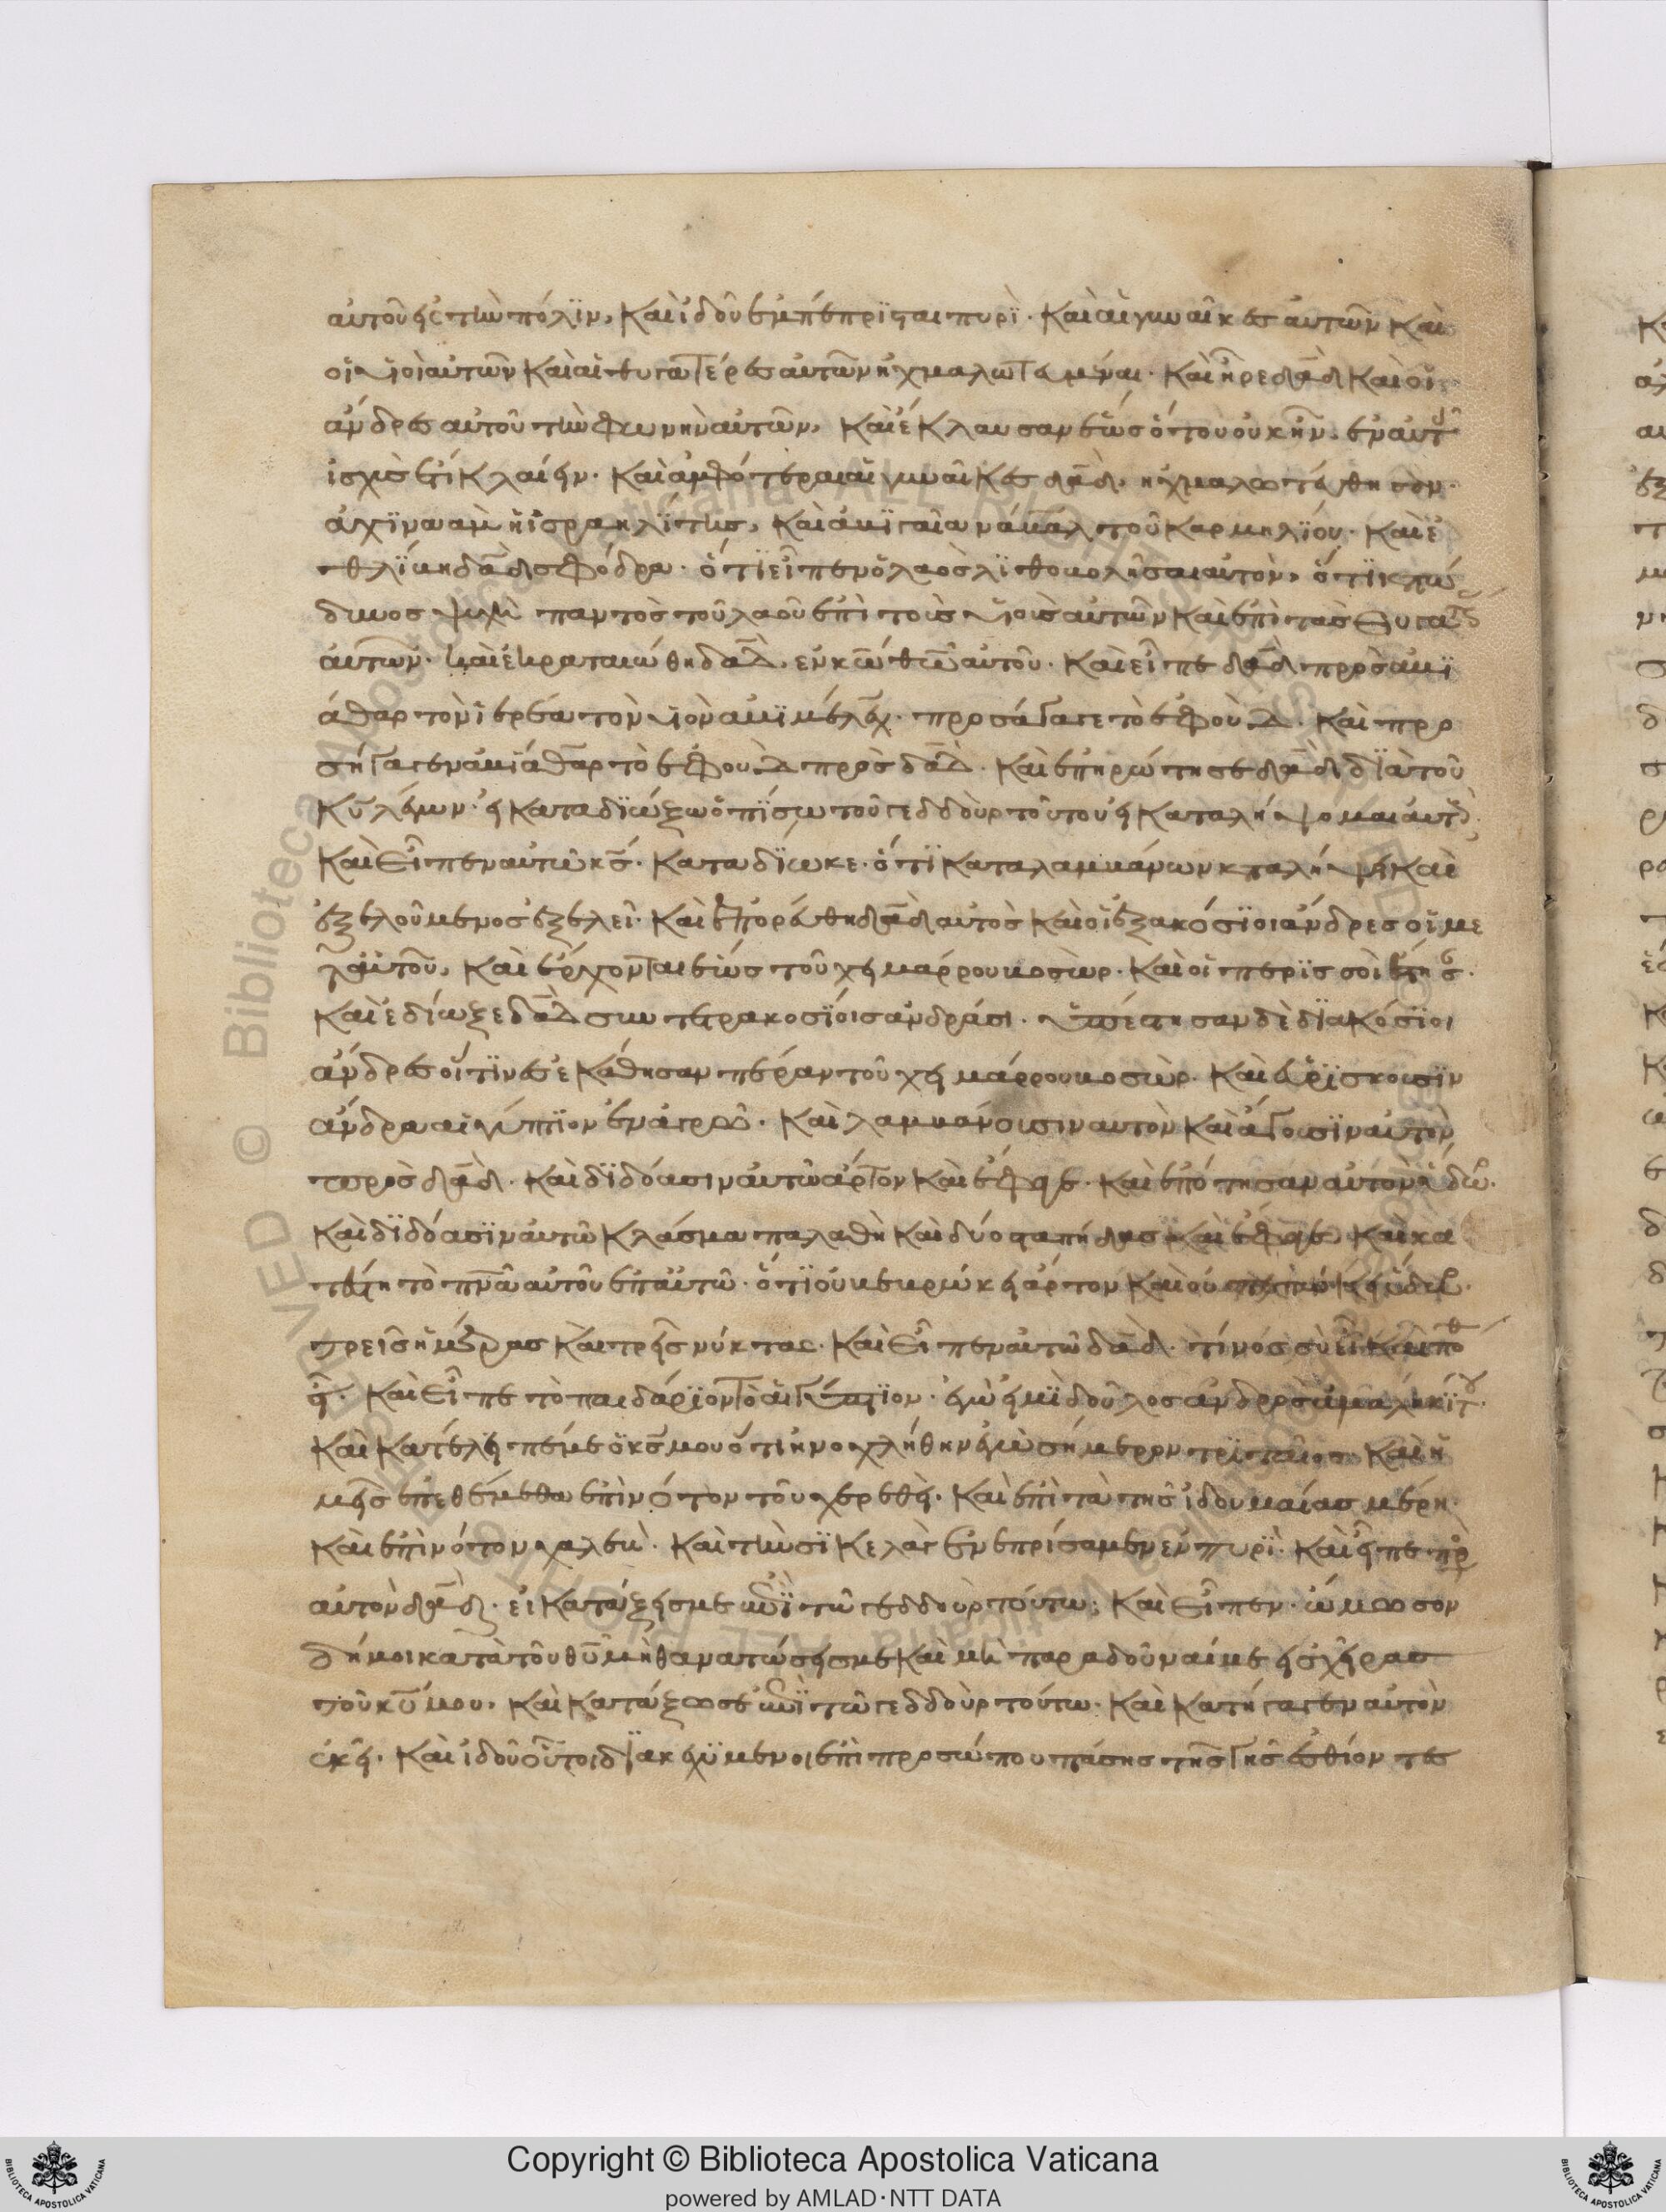 αὐτοῦ εἰς τὴν πόλϊν, καὶ ἰδοὺ ἐμπέπρισται πυρὶ· καὶ αἱ γυναῖκες αὐτῶν καὶ
οἱ υἱοὶ αὐτῶν καὶ αἱ θυγατέρες αὐτῶν ἠχμαλωτευμέναι· καὶ ἦρε δα̅δ καὶ οἱ
ἄνδρες αὐτοῦ τὴν φωνὴν αὐτῶν, καὶ ἔκλαυσαν ἕως ὅτου οὐκ ἦν ἐν αὐτοῖς
ἰσχὺς ἔτι κλαίειν· καὶ ἀμφότεραι αἱ γυναῖκες δα̅δ, ἠχμαλωτεύθησαν·
ἀχϊναὰμ ἡ ἰσραηλῖτις, καὶ ἀβϊγαία νάβαλ τοῦ καρμηλίου· καὶ ἐ
θλίβη δα̅δ σφόδρα· ὅτι εἶπεν ὁ λαὸς λϊθοβολῆσαι αὐτὸν, ὅτι κατώ
δυνος ψυχὴ παντὸς τοῦ λαοῦ ἐπὶ τοὺς υἱοὺς αὐτῶν καὶ ἐπὶ τὰς θυγατέ
αὐτῶν· καὶ ἐκραταιώθη δα̅δ, ἐν κ̅ω θ̅ω αὐτοῦ· καὶ εἶπε δα̅δ πρὸς ἀβϊ
άθαρ τὸν ἱερέα τὸν υἱὸν ἀβϊμέλεχ· προσάγαγε τὸ ἐφούδ· καὶ προ
σήγαγεν ἀβϊάθαρ τὸ ἐφοὺδ πρὸς δα̅δ· καὶ ἐπηρώτησε δα̅δ διὰ τοῦ
κ̅υ λέγων· εἰ καταδϊώξω ὀπίσω τοῦ γεδδοὺρ τούτου εἰ καταλήψομαι αὐτὸ·
καὶ εἶπεν αὐτῶ κ̅ς· καταδίωκε· ὅτι καταλαμβάνων καταλήψει καὶ
ἐξελούμενος ἐξελεῖ· καὶ ἐπορεύθη δα̅δ αὐτὸς καὶ οἱ ἑξακόσϊοι ἄνδρες οἱ με
τ' αὐτοῦ, καὶ ἔρχονται ἕως τοῦ χειμάρρου βοσὼρ· καὶ οἱ περισσοὶ ἔστησ·
καὶ ἐδίωξε δα̅δ σὺν τετρακοσίοις ἀνδράσι· ὑπέστησαν δὲ διακόσϊοι
ἄνδρες οἵτινες ἐκάθησαν πέραν τοῦ χειμάρρου βοσὼρ· καὶ εὑρίσκουσϊν
ἄνδρα αἰγύπτιον ἐν ἀγρῶ· καὶ λαμβάνουσιν αὐτὸν καὶ ἄγουσϊν αὐτὸν
πρὸς δα̅δ· καὶ διδόασιν αὐτῶ ἄρτον καὶ ἔφαγε· καὶ ἐπότησαν αὐτὸν ὕδωρ·
καὶ διδόασϊν αὐτῶ κλάσμα παλάθη καὶ δύο σταπήδας καὶ ἔφαγε καὶ κα
τέστη τὸ πν̅α αὐτοῦ ἐπ' αὐτῶ· ὅτι οὐ βεβρώκει ἄρτον καὶ οὐ πεπώκει ὕδωρ·
τρεῖς ἡμέρας καὶ τρεῖς νύκτας· καὶ εἶπεν αὐτῶ δα̅δ· τίνος σὺ εἶ καὶ πόθ
εἶ· καὶ εἶπε τὸ παιδάριον τὸ αἰγύπτιον· ἐγώ εἰμι δοῦλος ἀνδρὸς ἀμαληκίτου·
καὶ κατέλειπέ με ὁ κ̅ς μου ὅτι ἠνοχλήθην ἐγὼ σήμερον τρϊταῖος· καὶ ἡ
μεῖς ἐπεθέμεθα ἐπὶ νότον τοῦ χερεθὶ· καὶ ἐπὶ τὰ τῆς ἰδουμαίας μέρη·
καὶ ἐπὶ νότον χαλεὺ· καὶ τὴν σικελὰγ ἐνεπρίσαμεν ἐν πυρὶ· καὶ εἶπε πρὸ
αὐτὸν δα̅δ· εἰ κατάξεις με ἐπὶ τῶ γεδδοὺρ τούτω; καὶ εἶπεν· ὤμοσον
δή μοι κατὰ τοῦ θ̅υ μὴ θανατώσεις με καὶ μὴ παραδοῦναί με εἰς χεῖρας
τοῦ κ̅υ μου, καὶ κατάξω σε ἐπὶ τῶ γεδδοὺρ τούτω· καὶ κατήγαγεν αὐτὸν
ἐκεῖ· καὶ ἰδοὺ οὗτοι διακεχυμένοι ἐπὶ προσώπου πάσης τῆς γῆς ἐσθίοντες
Copyright © Biblioteca Apostolica Vaticana
powered by AMLAD·NTT DATA